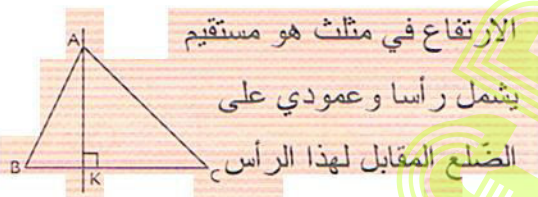 الارتفاع في مثلث هو مستقيم
يشمل رأسا وعمودي على
الضّلع المقابل لهذا الرأس
A
B
K
C